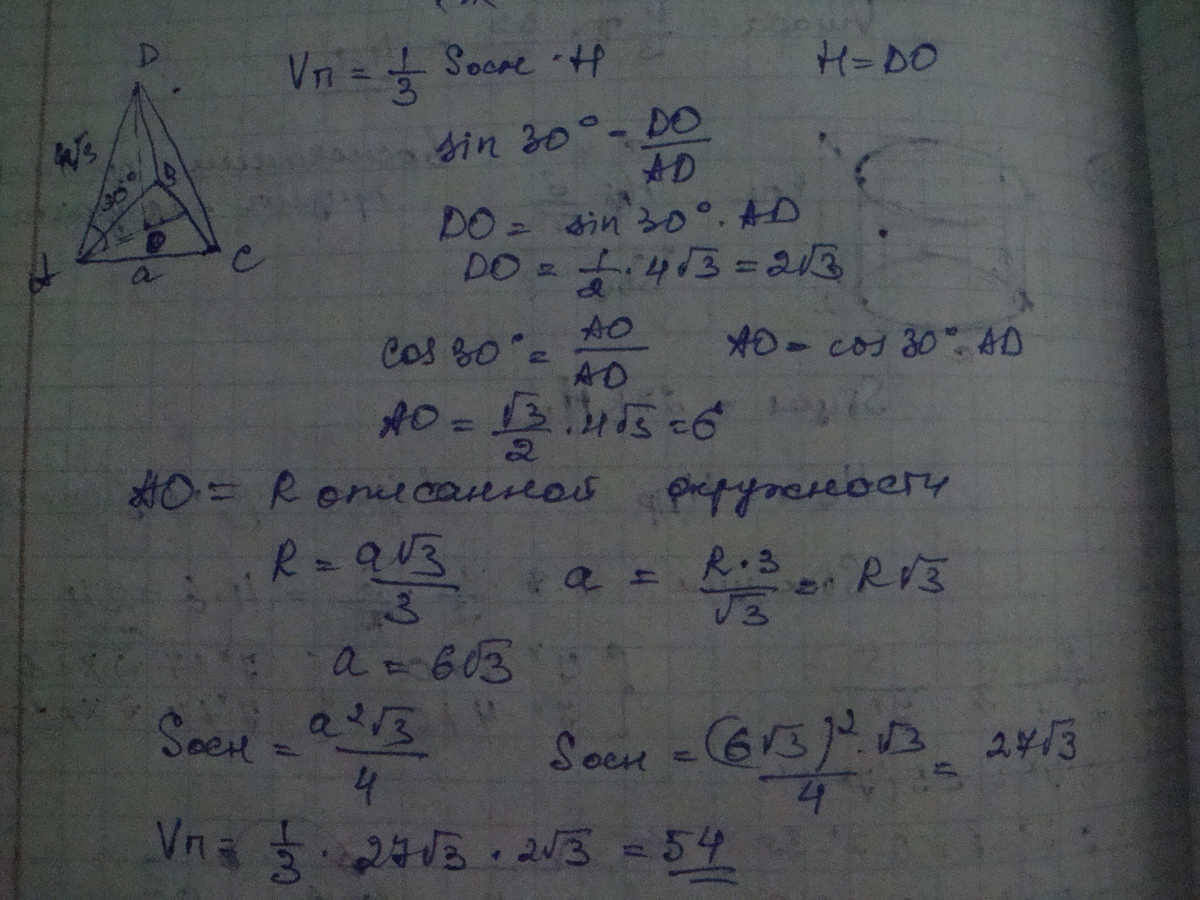 D
Vп = 1/3 Sосн · H
H = DO
4√3
30°
B
O
A
a
C
sin 30° = DO/AD
DO = sin 30° · AD
DO = 1/2 · 4√3 = 2√3
cos 30° = AO/AD
AO = cos 30° · AD
AO = √3/2 · 4√3 = 6
AO = R описанной окружности
R = a√3/3
a = R·3/√3 = R√3
a = 6√3
Sосн = a²√3/4
Sосн = (6√3)²·√3/4 = 27√3
Vп = 1/3 · 27√3 · 2√3 = 54